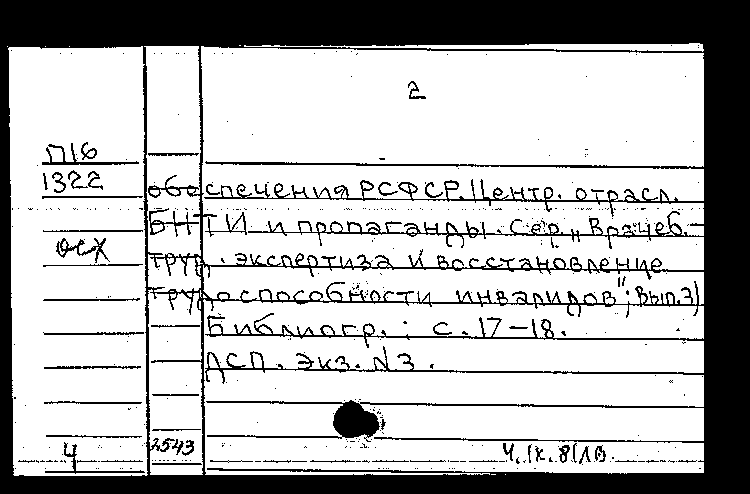 2
П16
1322
обеспечения РСФСР. Центр. отрасл.
БНТИ и пропаганды. Сер. „Врачеб.-
осх
труд. экспертиза и восстановление
трудоспособности инвалидов"; Вып.3)
Библиогр.: с. 17-18.
ДСП. Экз. №3.
4 2543